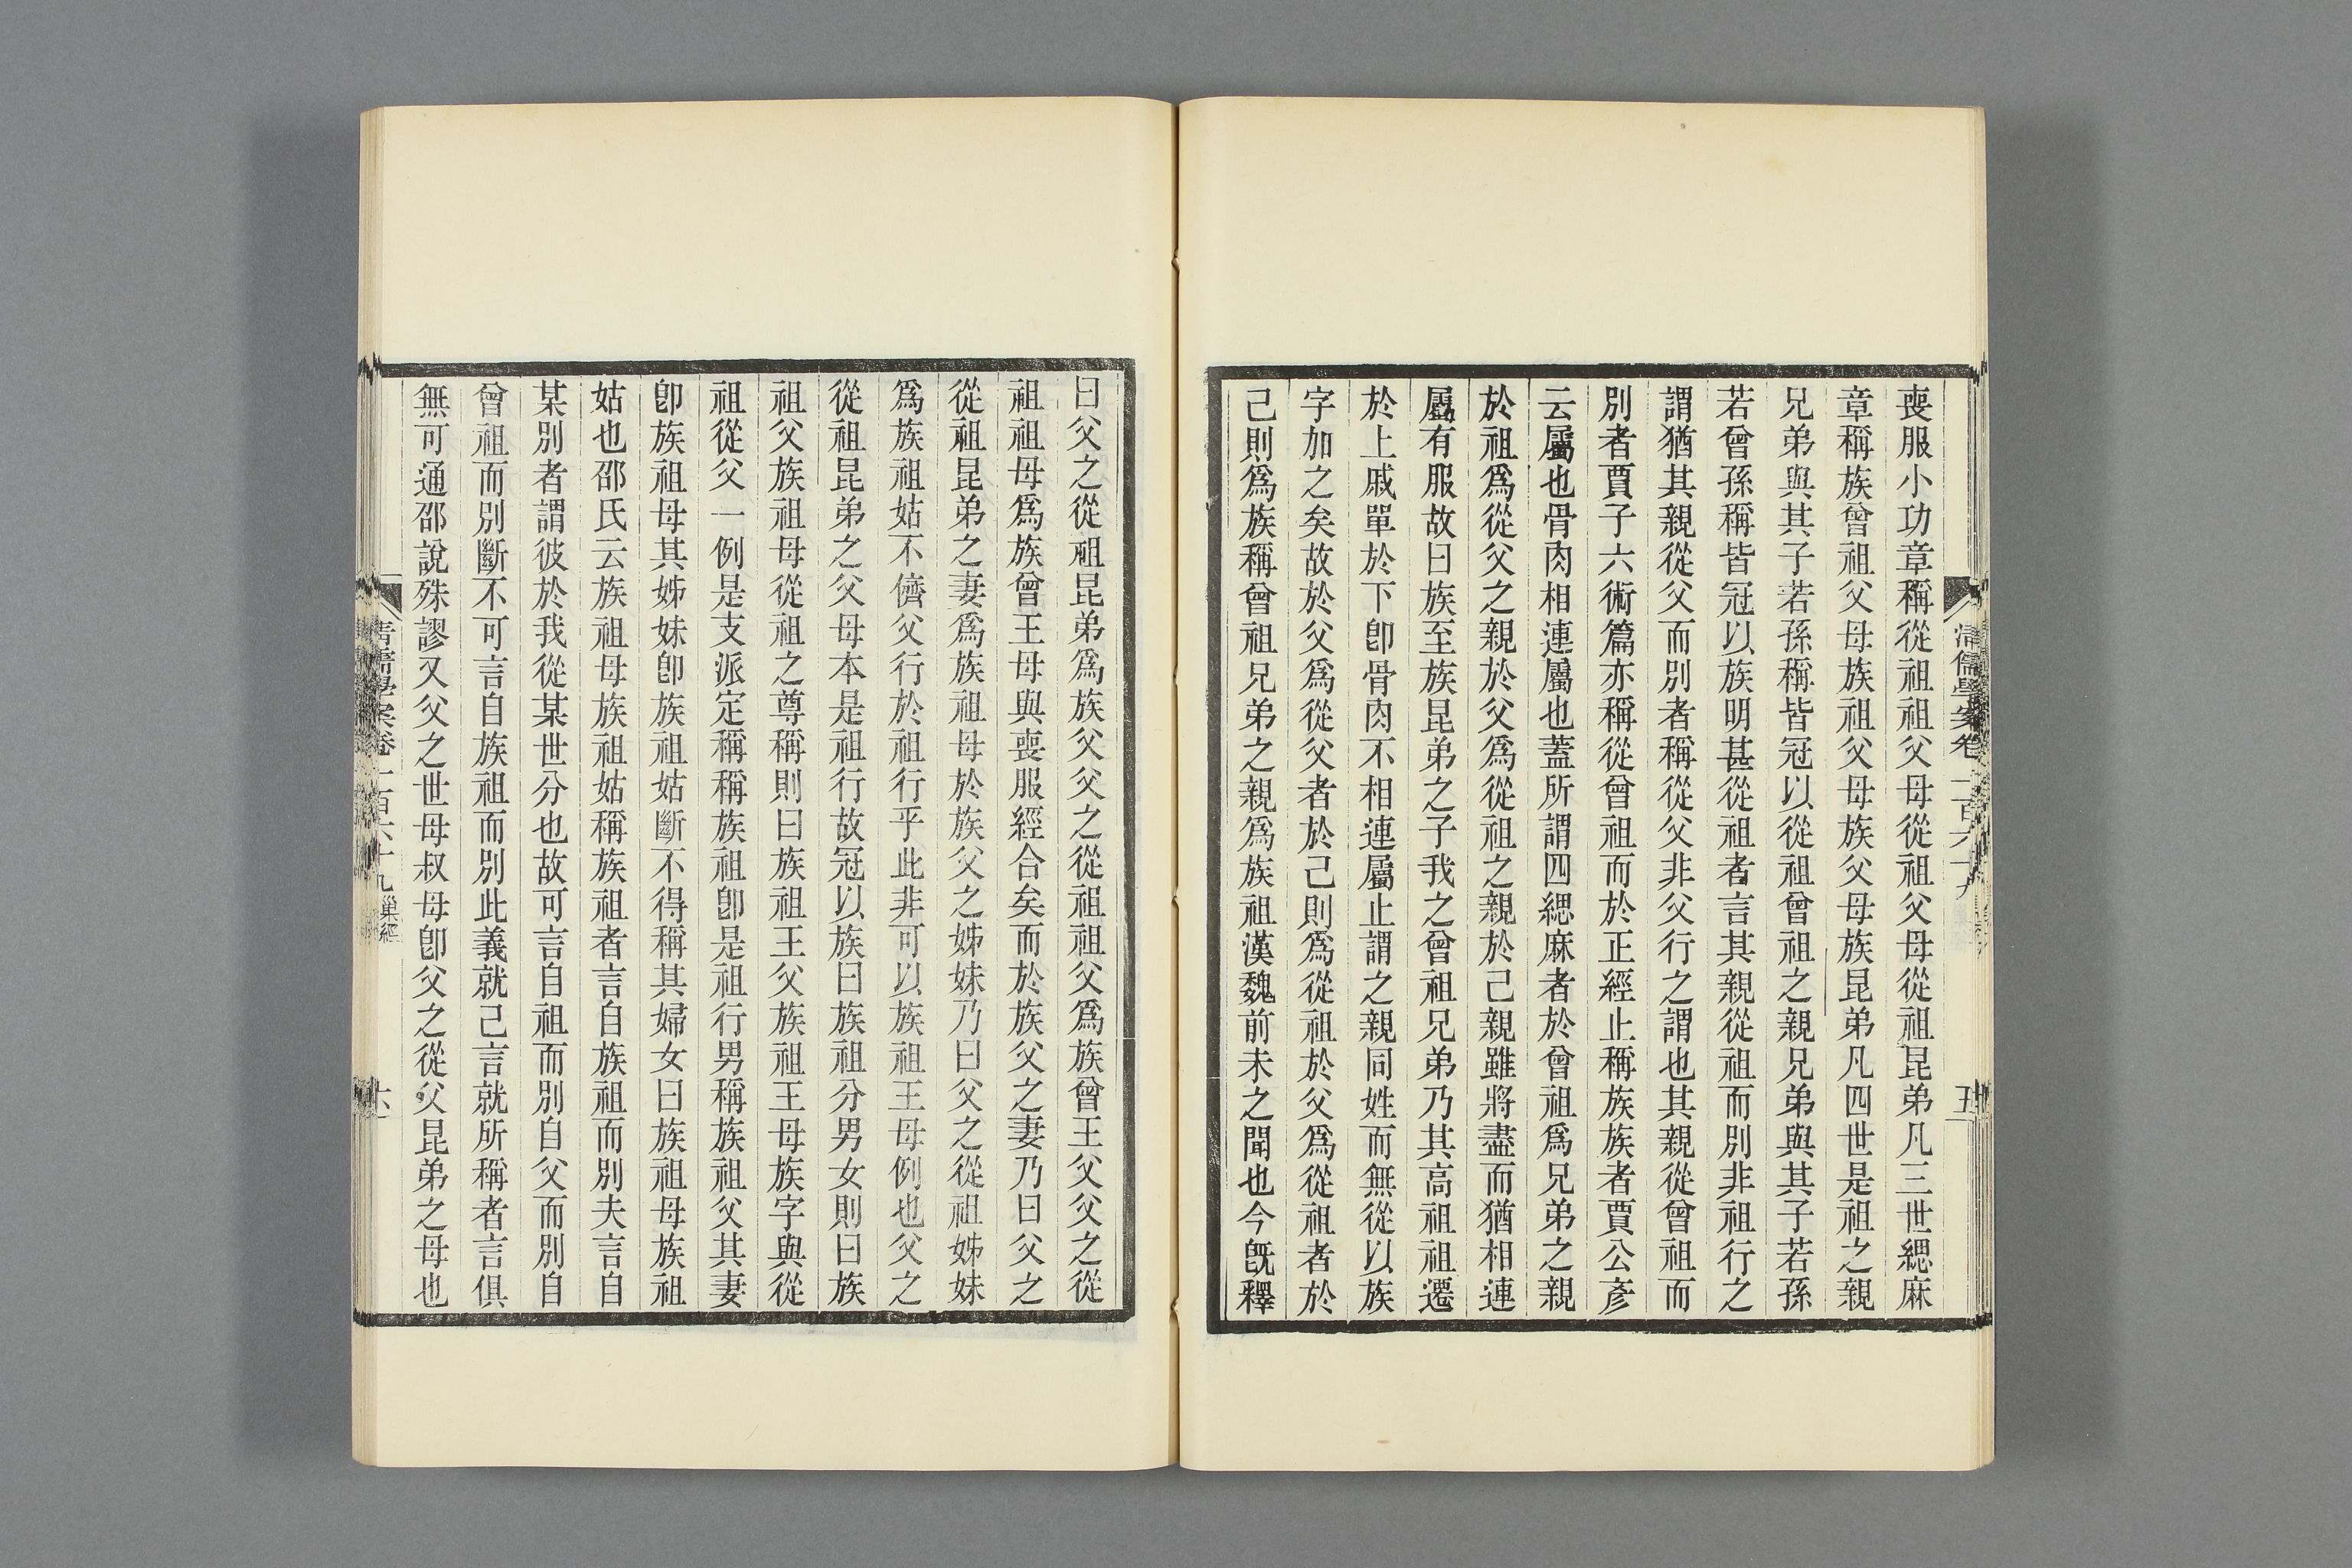 喪服小功章稱從祖祖父母從祖父母從祖昆弟凡三世緦麻
章稱族曾祖父母族祖父母族父母族昆弟凡四世是祖之親
兄弟與其子若孫稱皆冠以從祖曾祖之親兄弟與其子若孫
若曾孫稱皆冠以族明甚從祖者言其親從祖而別非祖行之
謂猶其親從父而別者稱從父非父行之謂也其親從曾祖而
別者賈子六術篇亦稱從曾祖而於正經止稱族族者賈公彥
云屬也骨肉相連屬也蓋所謂四緦麻者於曾祖為兄弟之親
於祖為從父之親於父為從祖之親於己親雖將盡而猶相連
屬有服故曰族至族昆弟之子我之曾祖兄弟乃其高祖祖遷
於上戚單於下卽骨肉不相連屬止謂之親同姓而無從以族
字加之矣故於父為從父者於己則為從祖於父為從祖者於
己則為族稱曾祖兄弟之親為族祖漢魏前未之聞也今旣釋
清儒學案卷一百六十九
五
曰父之從祖昆弟為族父父之從祖祖父為族曾王父父之從
祖祖母為族曾王母與喪服經合矣而於族父之妻乃曰父之
從祖昆弟之妻為族祖母於族父之姊妹乃曰父之從祖姊妹
為族祖姑不儕父行於祖行乎此非可以族祖王母例也父之
從祖昆弟之父母本是祖行故冠以族曰族祖分男女則曰族
祖父族祖母從祖之尊稱則曰族祖王父族祖王母族字與從
祖從父一例是支派定稱稱族祖卽是祖行男稱族祖父其妻
卽族祖母其姊妹卽族祖姑斷不得稱其婦女曰族祖母族祖
姑也邵氏云族祖母族祖姑稱族祖者言自族祖而別夫言自
某別者謂彼於我從某世分也故可言自祖而別自父而別自
曾祖而別斷不可言自族祖而別此義就己言就所稱者言俱
無可通邵說殊謬又父之世母叔母卽父之從父昆弟之母也
清儒學案卷一百六十九 巢經
六